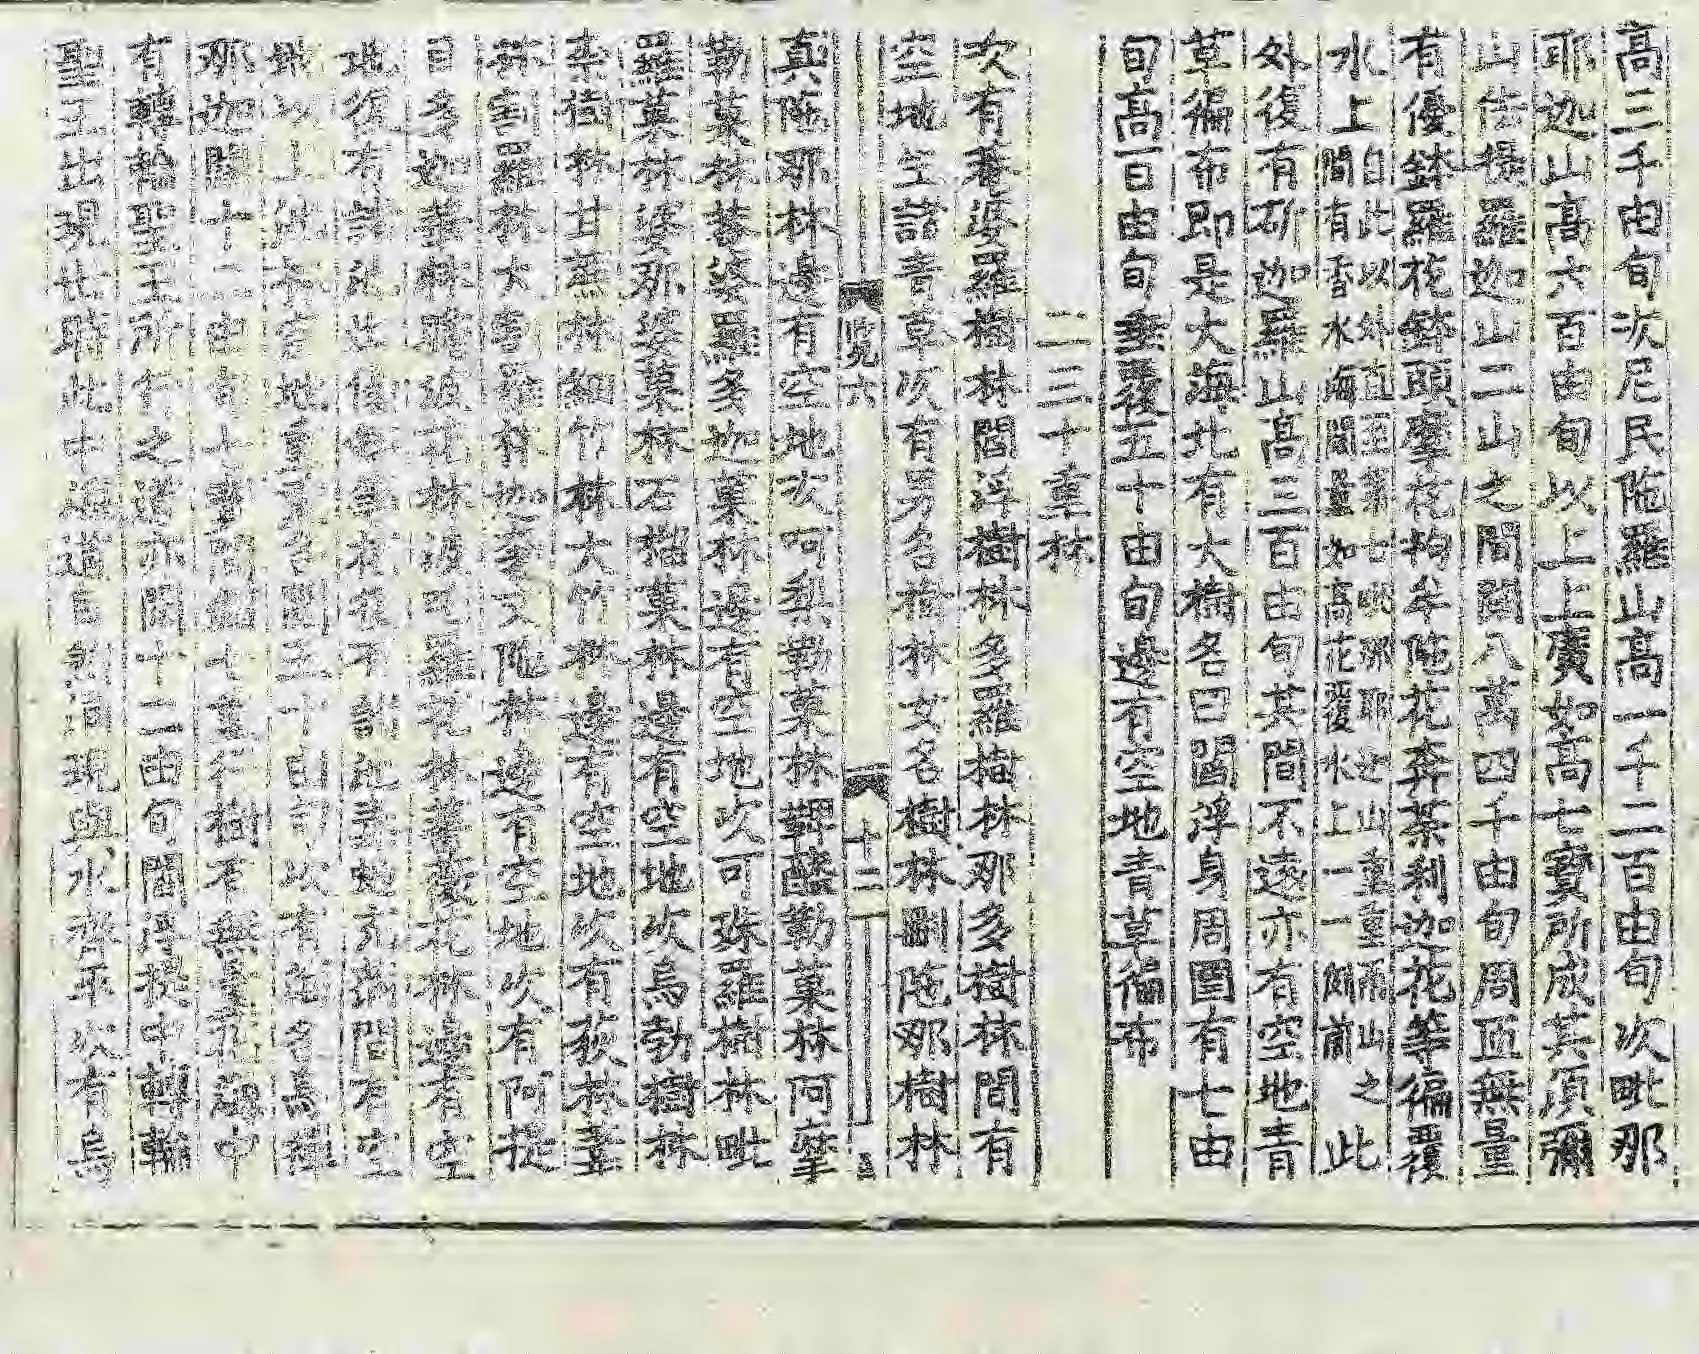 高三千由旬次尼民陁羅山高一千二百由旬次毗那
耶迦山高六百由旬以上上寶如高七寶所成其須彌
山佉提羅迦山二山之間闊八萬四千由旬周匝無量
有優鉢羅花鉢頭摩花拘牟陁花奔茶利迦花等徧覆
水上自此以外直至第七毗那耶迦山重重兩山之
間有香水海闊量如高花覆水上一一如前此
外復有斫迦羅山高三百由旬其間不遠亦有空地青
草徧布即是大海北有大樹名曰閻浮身周圍有七由
旬高百由旬垂覆五十由旬邊有空地青草徧布
二三十重林
次有菴婆羅樹林閻浮樹林多羅樹林那多樹林間有
空地生諸青草次有男名樹林女名樹林刪陁那樹林
覽六 十二
真陁那林邊有空地次呵梨勒菓林鞞醯勒菓林阿摩
勒菓林菴婆羅多迦菓林邊有空地次可殊羅樹林毗
羅菓林婆那婆菓林石榴菓林邊有空地次烏勃樹林
柰樹林甘蔗林細竹林大竹林邊有空地次有荻林葦
林割羅林大割羅林迦多文陁林邊有空地次有阿提
目多迦華林瞻波花林波吒羅花林薔薇花林邊有空
地復有諸池此優鉢華有 不 此 地充滿間有空
地以上 空地 闊五十由旬次有 名烏禪
那迦闊十二由旬 十 間 七重行樹 無 海中
有轉輪聖王所行之道亦闊十二由旬閻浮提中轉輪
聖王出現世時此中海道自然涌現與水齊平次有烏